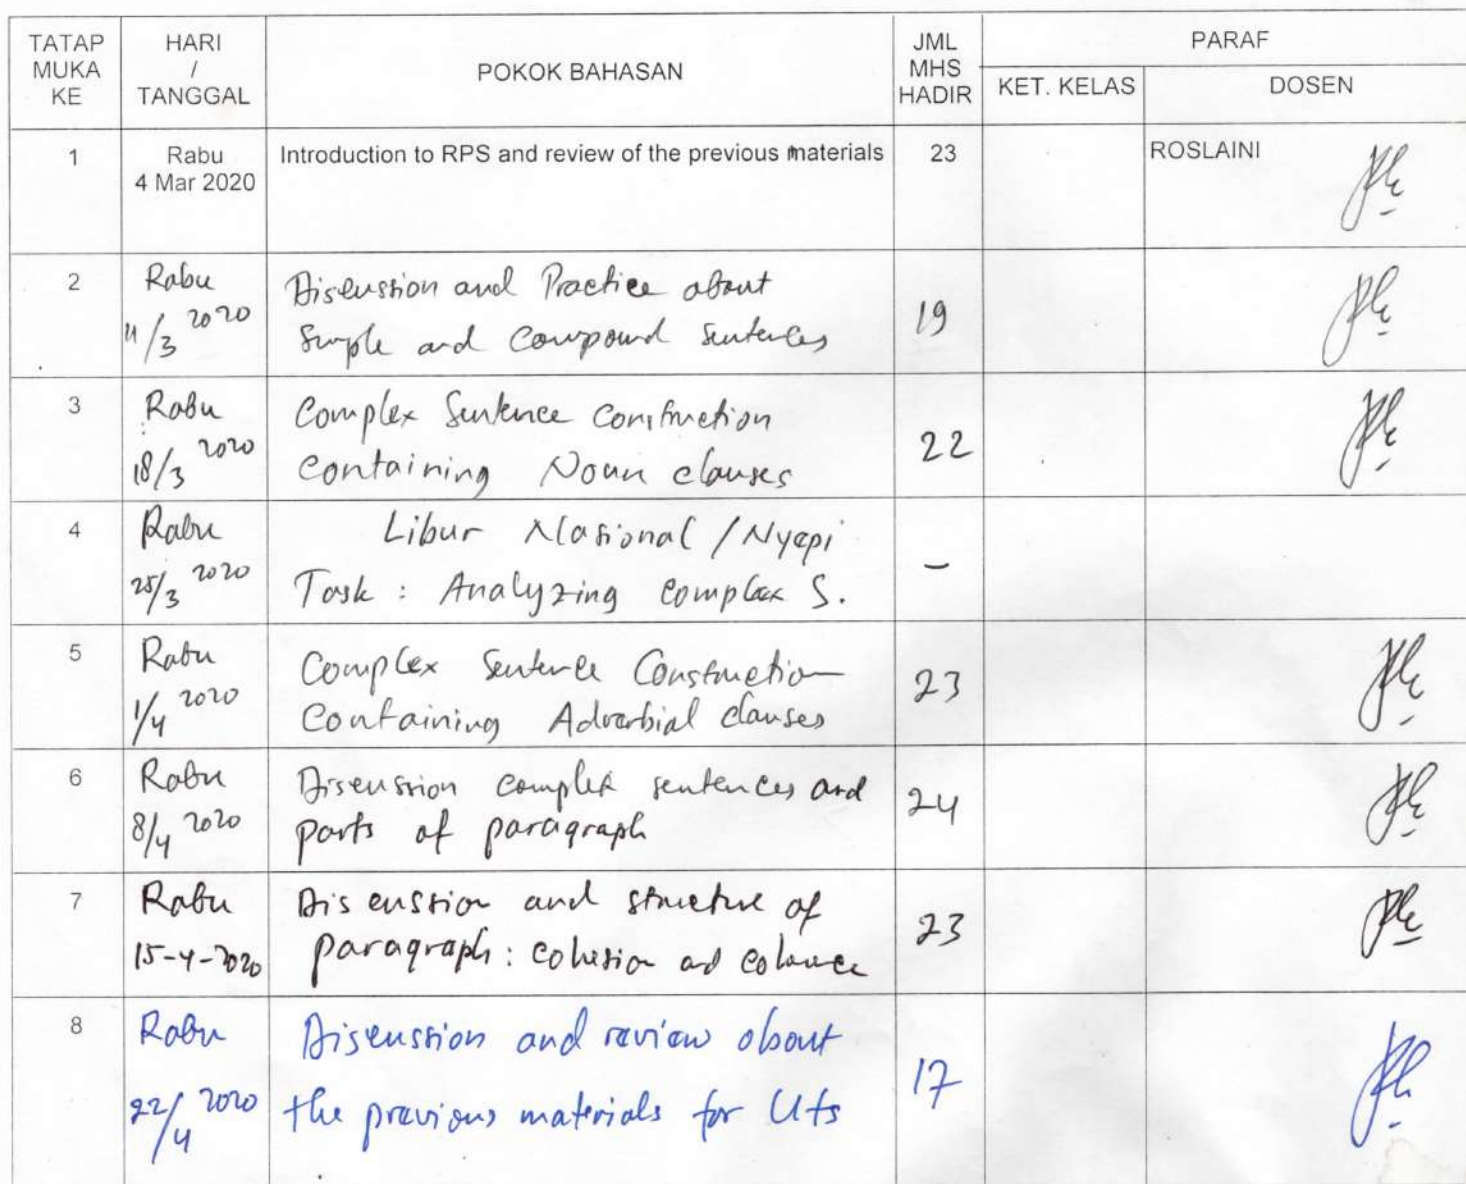 TATAP MUKA KE
HARI / TANGGAL
POKOK BAHASAN
JML MHS HADIR
PARAF
KET. KELAS
DOSEN
1
Rabu
4 Mar 2020
Introduction to RPS and review of the previous materials
23
ROSLAINI
2
Rabu
11/3 2020
Discussion and Practice about
Simple and Compound Sentences
19
3
Rabu
18/3 2020
Complex Sentence Construction
Containing Noun clauses
22
4
Rabu
25/3 2020
Libur Nasional / Nyepi
Task : Analyzing complex S.
-
5
Rabu
1/4 2020
Complex Sentence Construction
Containing Adverbial clauses
23
6
Rabu
8/4 2020
Discussion complex sentences and
parts of paragraph
24
7
Rabu
15-4-2020
Discussion and structure of
paragraph : cohesion and
23
8
Rabu
22/4 2020
Discussion and review about
the previous materials for Uts
17